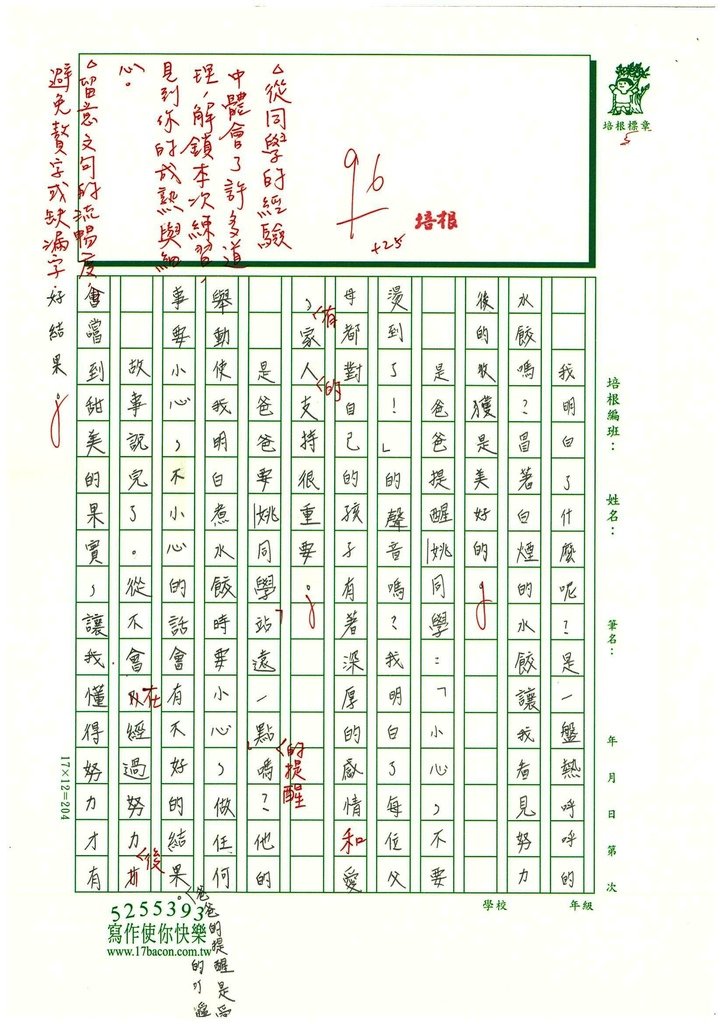 我明白了什麼呢？是一盤熱呼呼的
水餃嗎？冒著白煙的水餃讓我看見努力
後的收獲是美好的。
是爸爸提醒姚同學：「小心，不要
燙到了！」的聲音嗎？我明白了每位父
母都對自己的孩子有著深厚的感情和愛
，有家人的支持很重要。
是爸爸要姚同學站遠一點的提醒嗎？他的
舉動使我明白煮水餃時要小心，做任何
事要小心，不小心的話會有不好的結果。
爸爸的提醒是
的叮
故事說完了。從不會在經過努力後
會嚐到甜美的果實，讓我懂得努力才有
好結果。
△從同學的經驗
中體會了許多道
理，解鎖本次練習，
見到你的成熟與細
心。
△留意文句的流暢度，
避免贅字或缺漏字
96
+25
培根
培根標章
5
培根編班：
姓名：
筆名：
年 月 日 第 次
學校
年級
17×12=204
5255393
寫作使你快樂
www.17bacon.com.tw